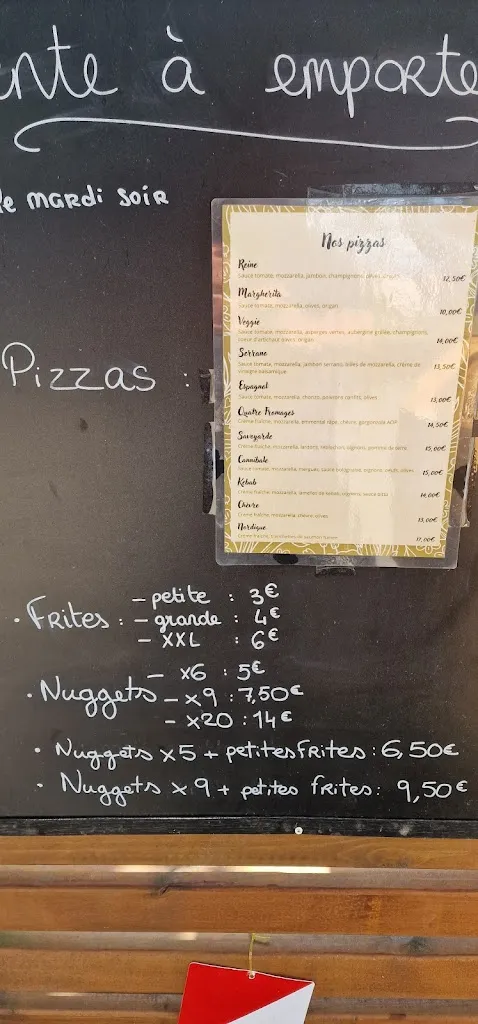 nte à emporte
le mardi soir
Nos pizzas
Reine
Sauce tomate, mozzarella, jambon, champignons, olives, origan
12,50€
Margherita
Sauce tomate, mozzarella, olives, origan
10,00€
Veggie
Sauce tomate, mozzarella, asperges vertes, aubergine grillée, champignons,
coeur d'artichaut, olives, origan
14,00€
Serrano
Sauce tomate, mozzarella, jambon serrano, billes de mozzarella, crème de
vinaigre balsamique
13,50€
Pizzas :
Espagnol
Sauce tomate, mozzarella, chorizo, poivrons confits, olives
13,00€
Quatre Fromages
Crème fraîche, mozzarella, emmental râpé, chèvre, gorgonzola AOP
14,50€
Savoyarde
Crème fraîche, mozzarella, lardons, reblochon, oignons, pomme de terre
15,00€
Cannibale
Sauce tomate, mozzarella, merguez, sauce bolognaise, oignons, oeufs, olives
15,00€
Kebab
Crème fraîche, mozzarella, lamelles de kebab, oignons, sauce
14,00€
Chèvre
Crème fraîche, mozzarella, chèvre, olives
13,00€
Nordique
Crème fraîche, tranchettes de saumon fumé
17,00€
• Frites : - petite : 3€
- grande : 4€
- XXL : 6€
• Nuggets - x6 : 5€
- x9 : 7,50€
- x20 : 14€
• Nuggets x5 + petites frites : 6,50€
• Nuggets x9 + petites frites : 9,50€